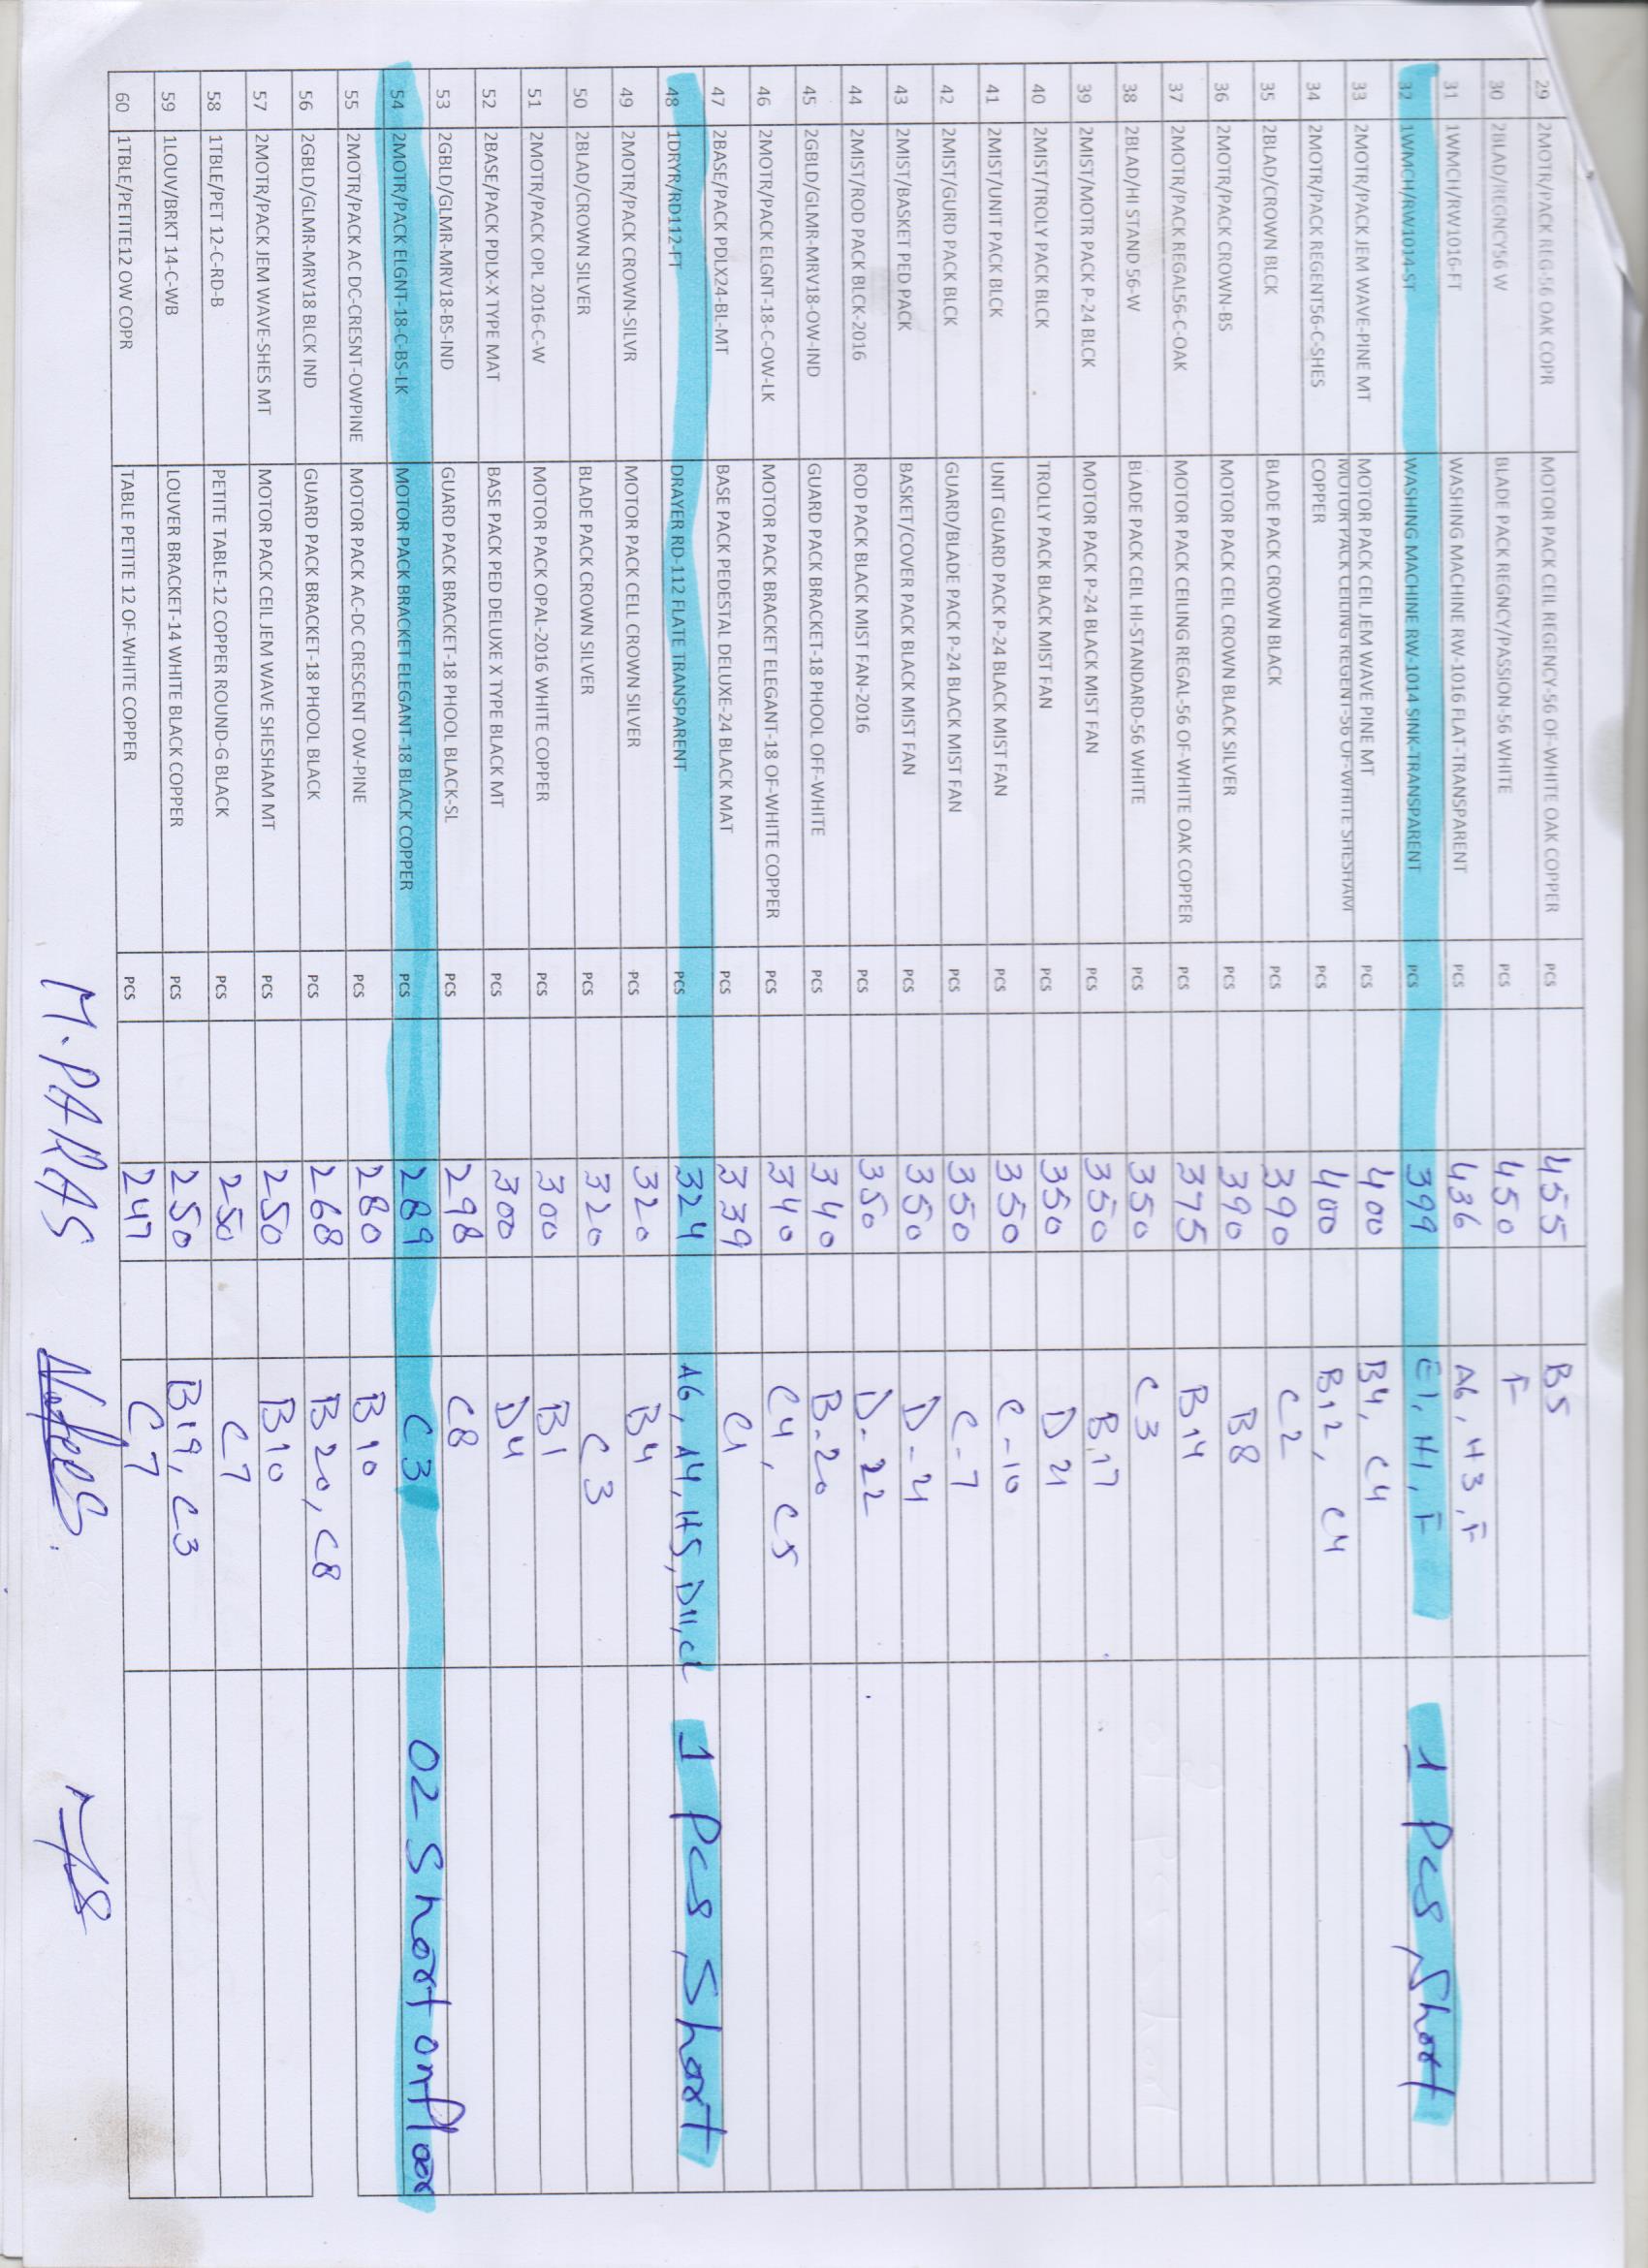 29 2MOTR/PACK REG-56 OAK COPR MOTOR PACK CEIL REGENCY-56 OF-WHITE OAK COPPER PCS 455 B5
30 2BLAD/REGNCY56 W BLADE PACK REGNCY/PASSION-56 WHITE PCS 450 F
31 1WMCH/RW1016-FT WASHING MACHINE RW-1016 FLAT-TRANSPARENT PCS 436 A6, H3, F
32 1WMCH/RW1014-ST WASHING MACHINE RW-1014 SINK-TRANSPARENT PCS 399 E1, H1, F 1 Pcs Short
33 2MOTR/PACK JEM WAVE-PINE MT MOTOR PACK CEIL JEM WAVE PINE MT PCS 400 B4, C4
34 2MOTR/PACK REGENT56-C-SHES MOTOR PACK CEILING REGENT-56 OF-WHITE SHESHAM COPPER PCS 400 B12, C4
35 2BLAD/CROWN BLCK BLADE PACK CROWN BLACK PCS 390 C2
36 2MOTR/PACK CROWN-BS MOTOR PACK CEIL CROWN BLACK SILVER PCS 390 B8
37 2MOTR/PACK REGAL56-C-OAK MOTOR PACK CEILING REGAL-56 OF-WHITE OAK COPPER PCS 375 B14
38 2BLAD/HI STAND 56-W BLADE PACK CEIL HI-STANDARD-56 WHITE PCS 350 C3
39 2MIST/MOTR PACK P-24 BLCK MOTOR PACK P-24 BLACK MIST FAN PCS 350 B.17
40 2MIST/TROLY PACK BLCK TROLLY PACK BLACK MIST FAN PCS 350 D 21
41 2MIST/UNIT PACK BLCK UNIT GUARD PACK P-24 BLACK MIST FAN PCS 350 C-10
42 2MIST/GURD PACK BLCK GUARD/BLADE PACK P-24 BLACK MIST FAN PCS 350 C-7
43 2MIST/BASKET PED PACK BASKET/COVER PACK BLACK MIST FAN PCS 350 D-21
44 2MIST/ROD PACK BLCK-2016 ROD PACK BLACK MIST FAN-2016 PCS 350 D-22
45 2GBLD/GLMR-MRV18-OW-IND GUARD PACK BRACKET-18 PHOOL OFF-WHITE PCS 340 B-20
46 2MOTR/PACK ELGNT-18-C-OW-LK MOTOR PACK BRACKET ELEGANT-18 OF-WHITE COPPER PCS 340 C4, C5
47 2BASE/PACK PDLX24-BL-MT BASE PACK PEDESTAL DELUXE-24 BLACK MAT PCS 339 C1
48 1DRYR/RD112-FT DRAYER RD-112 FLATE TRANSPARENT PCS 324 A6, A4, H5, D11, 1 Pcs Short
49 2MOTR/PACK CROWN-SILVR MOTOR PACK CELL CROWN SILVER PCS 320 B4
50 2BLAD/CROWN SILVER BLADE PACK CROWN SILVER PCS 320 C3
51 2MOTR/PACK OPL 2016-C-W MOTOR PACK OPAL-2016 WHITE COPPER PCS 300 B1
52 2BASE/PACK PDLX-X TYPE MAT BASE PACK PED DELUXE X TYPE BLACK MT PCS 300 D4
53 2GBLD/GLMR-MRV18-BS-IND GUARD PACK BRACKET-18 PHOOL BLACK-SL PCS 298 C8
54 2MOTR/PACK ELGNT-18-C-BS-LK MOTOR PACK BRACKET ELEGANT-18 BLACK COPPER PCS 289 C3 02 Short on floor
55 2MOTR/PACK AC DC-CRESNT-OWPINE MOTOR PACK AC-DC CRESCENT OW-PINE PCS 280 B10
56 2GBLD/GLMR-MRV18 BLCK IND GUARD PACK BRACKET-18 PHOOL BLACK PCS 268 B20, C8
57 2MOTR/PACK JEM WAVE-SHES MT MOTOR PACK CEIL JEM WAVE SHESHAM MT PCS 250 B10
58 1TBLE/PET 12-C-RD-B PETITE TABLE-12 COPPER ROUND-G BLACK PCS 250 C7
59 1LOUV/BRKT 14-C-WB LOUVER BRACKET-14 WHITE BLACK COPPER PCS 250 B19, C3
60 1TBLE/PETITE12 OW COPR TABLE PETITE 12 OF-WHITE COPPER PCS 247 C7
M.PARAS Nafees.